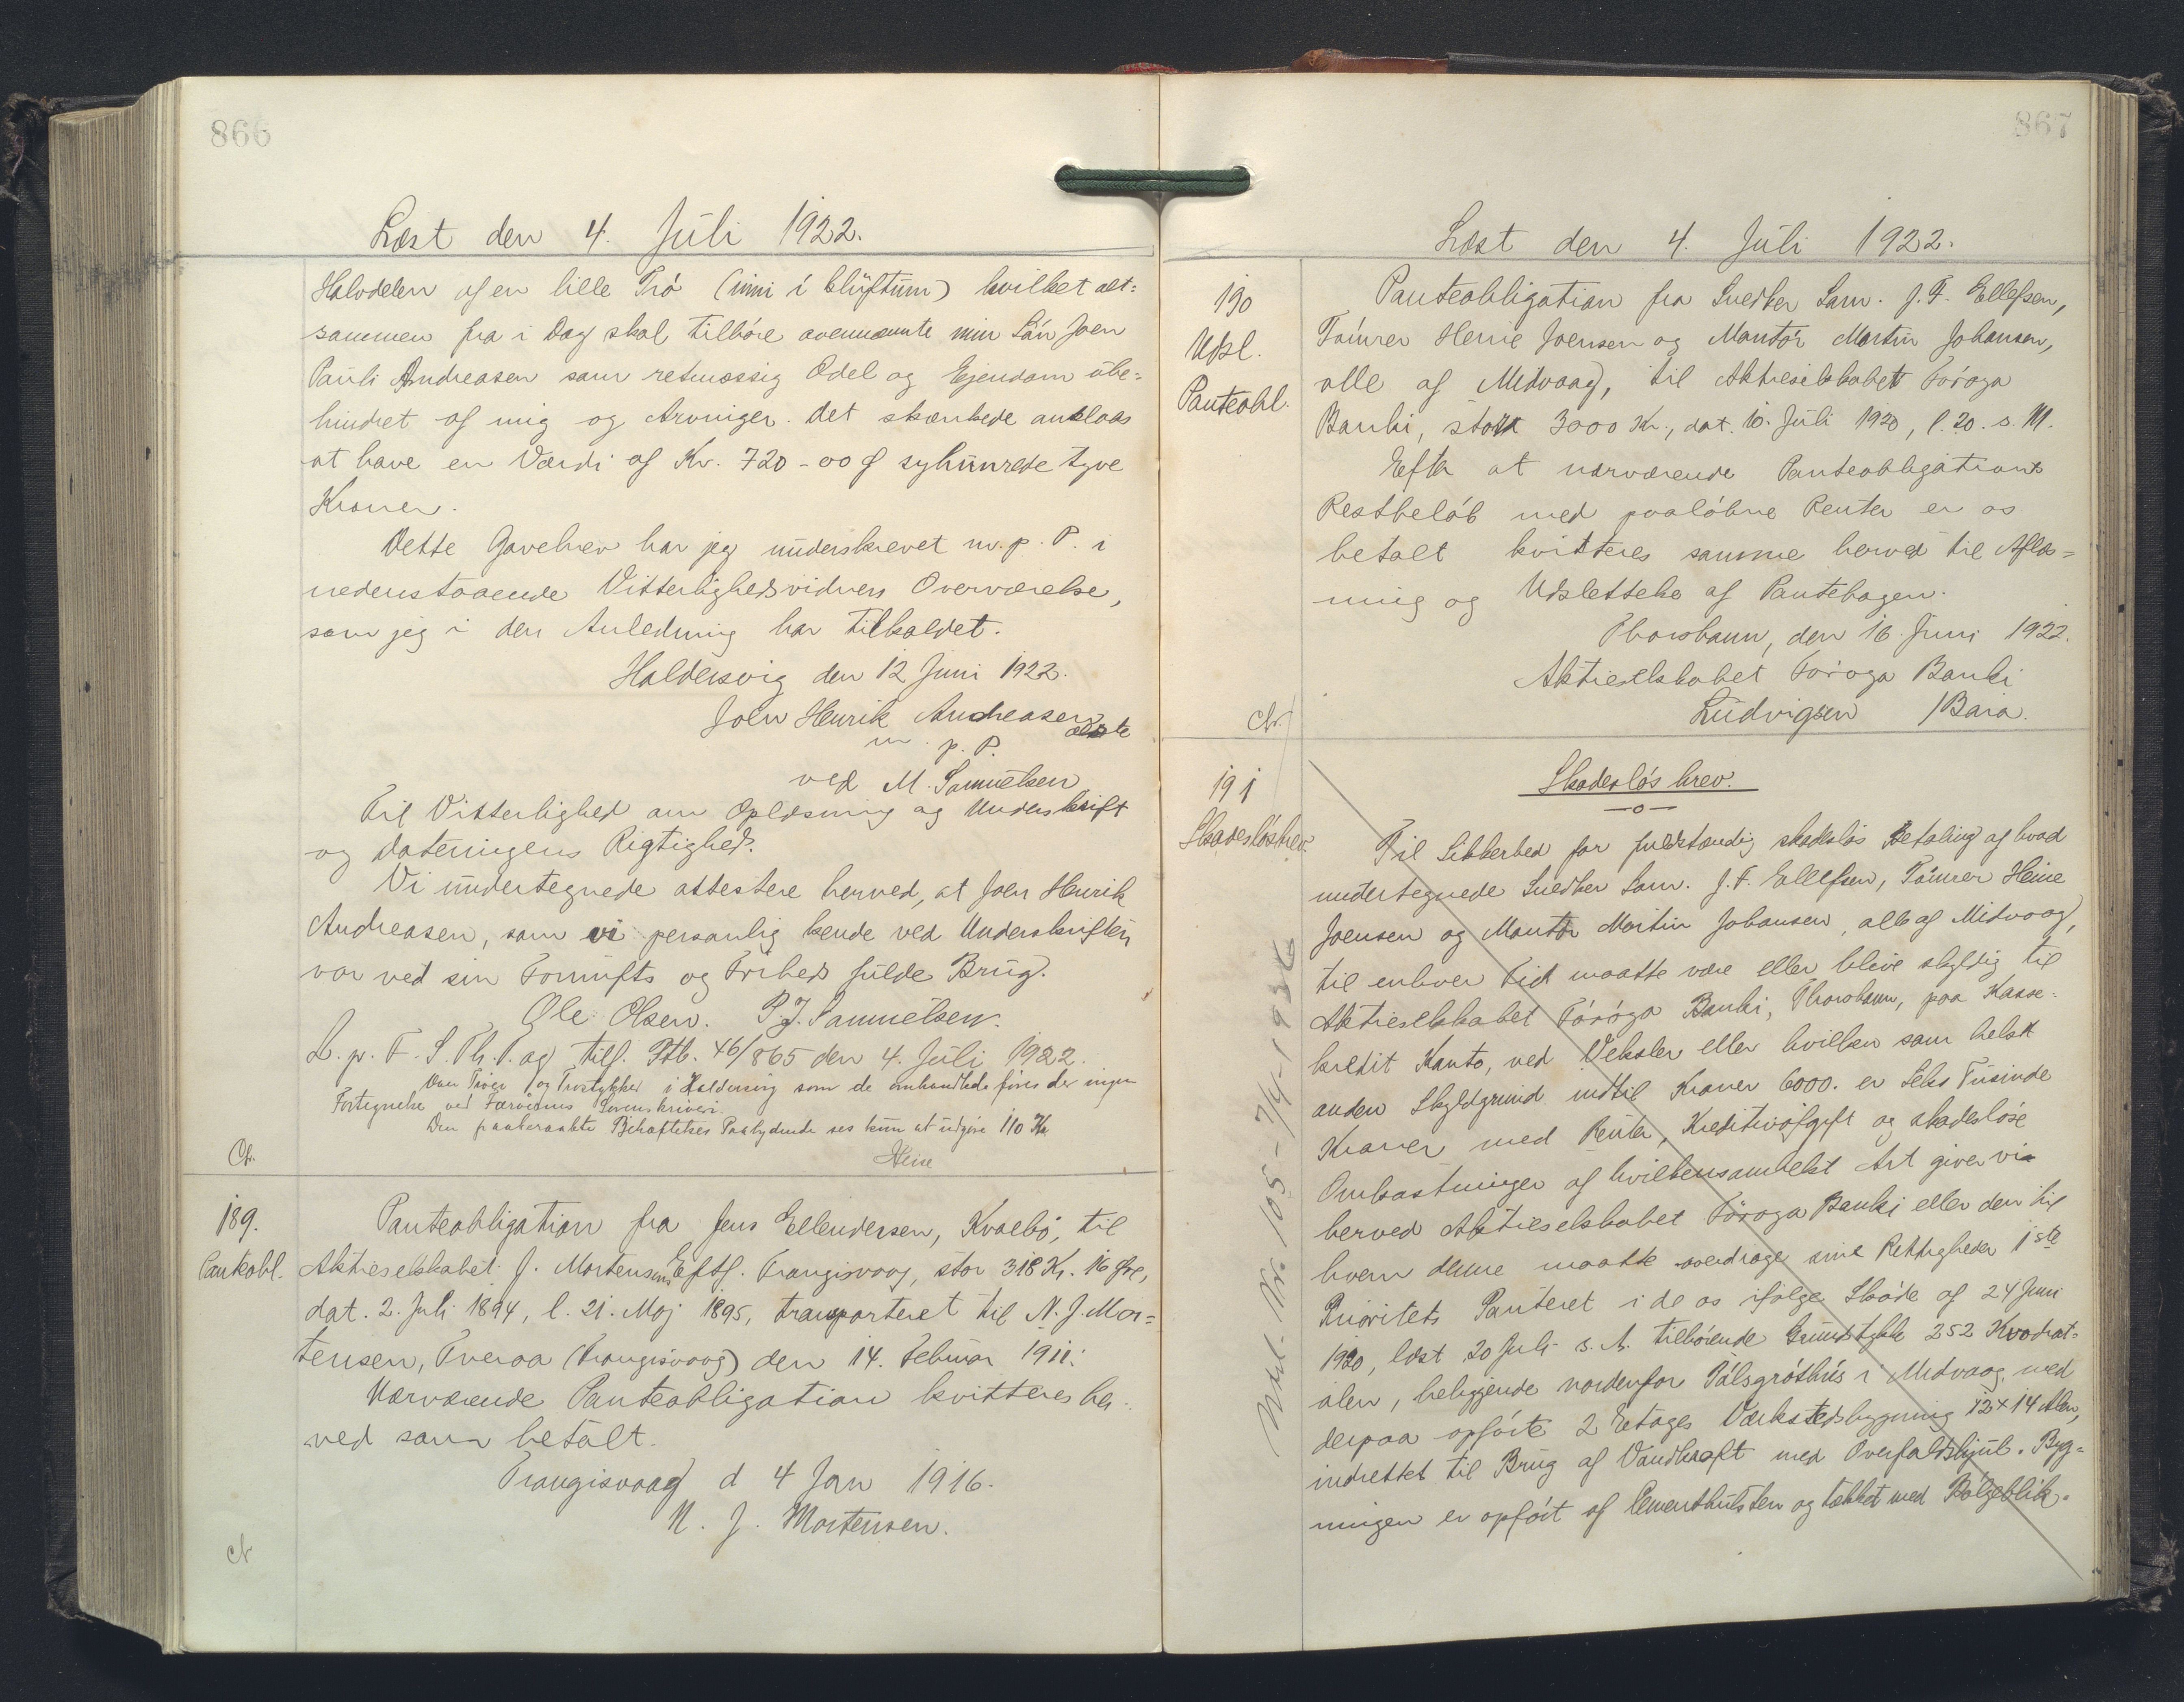 866
Læst den 4. Júli 1922.
Halvdelen af en lille Tró (inni í Clúftum) hvilket alt=
sammen fra i Dag skal tilhöre ovennævnte min Sön Joen
Pauli Andreasen som retmæssig Odel og Ejendom übe=
hindret af mig og Arvinger. Det skænkede anslaas
at have en Værdi af Kr. 720-00 Ø syhünrede tyve
Kroner.
Dette Gavebrev har jeg ünderskrevet m. p. P. i
nedenstaaende Vitterlighedsvidners Overværelse,
som jeg i den Anledning har tilkaldet.
Haldersvig den 12 Juni 1922.
Joen Henrik Andreasen
ældste
m. p. P.
ved M. Samuelsen
Til Vitterlighed om Oplæsning og Underskrift
og Dateringens Rigtighed.
Vi ündertegnede attestere herved, at Joen Henrik
Andreasen, som vi personlig kende ved Underskriften
var ved sin Fornüfts og Friheds fülde Brüg.
Ole Olsen. P. J. Samuelsen.
L. p. F. S. Th. P. og tilf. Ptb. 46/865 den 4. Júli 1922.
Over Tróer og Trostykker i Haldersvig som de omhandlede föres der ingen
Fortegnelse ved Færöernes Sorenskriveri.
Den paaberaabte Behæftelses Paalydende ses kün at üdgöre 110 Kr.
Heise
Ch.
189.
Panteobl.
Panteobligation fra Jens Ellendersen, Kvalbö, til
Aktieselskabet J. Mortensens Eftf. Trangisvaag, stor 318 Kr. 16 Øre,
dat. 2. Juli 1894, l. 21. Maj 1895, transporteret til N. J. Mor=
tensen, Tveraa (Trangisvaag) den 14. Februar 1911.
Nærværende Panteobligation kvitteres her=
ved som betalt.
Trangisvaag d 4 Jan 1916.
N. J. Mortensen.
Ch
867
Læst den 4. Júli 1922.
190
Udsl.
Panteobl.
Panteobligation fra Snedker Sam. J. F. Ellefsen,
Tömrer Heine Joensen og Montör Martin Johansen,
alle af Midvaag, til Aktieselskabet Föroya
Banki, stor 3000 Kr., dat. 10. Júli 1920, l. 20. s. M.
Efter at nærværende Panteobligations
Restbelöb med paalöbne Renter er os
betalt kvitteres samme herved til Aflæs=
ning og Udslettelse af Pantebogen.
Thorshavn, den 16. Juni 1922.
Aktieselskabet Föroya Banki
Lüdvigsen /Bærø.
Ch.
191
Skadeslösbrev.
Skadeslös brev.
Til Sikkerhed for füldstændig skadeslös Betaling af hvad
undertegnede Snedker Sam. J. F. Ellefsen, Tömrer Heine
Joensen og Montör Martin Johansen, alle af Midvaag,
til enhver Tid maatte være eller blive skyldig til
Aktieselskabet Föröya Banki, Thorshavn, paa Kasse=
kredit Konto, ved Veksler eller hvilken som helst
anden Skyldgrund indtil Kroner 6000. er Seks Tüsinde
Kroner med Renter, Kreditivafgift og skadeslöse
Omkostninger af hvilkensomhelst Art giver vi
herved Aktieselskabet Föroya Banki eller den til
hvem denne maatte overdrage sine Rettigheder 1ste
Prioritets Panteret i de os ifölge Sköde af 24 Juni
1920, læst 20 Juli s. A. tilhörende Grundstykke 252 Kvadrat=
alen, beliggende nordenfor Pálsgróthús i Midvaag, med
derpaa opförte 2 Etages Værkstedsbygning 12x14 Alen,
indrettet til Brüg af Vandkraft med Overfaldshjül. Byg=
ningen er opfört af Cementhülsten og tækket med Bölgeblik.
Udsl. Nr. 105 - 7/4-1936